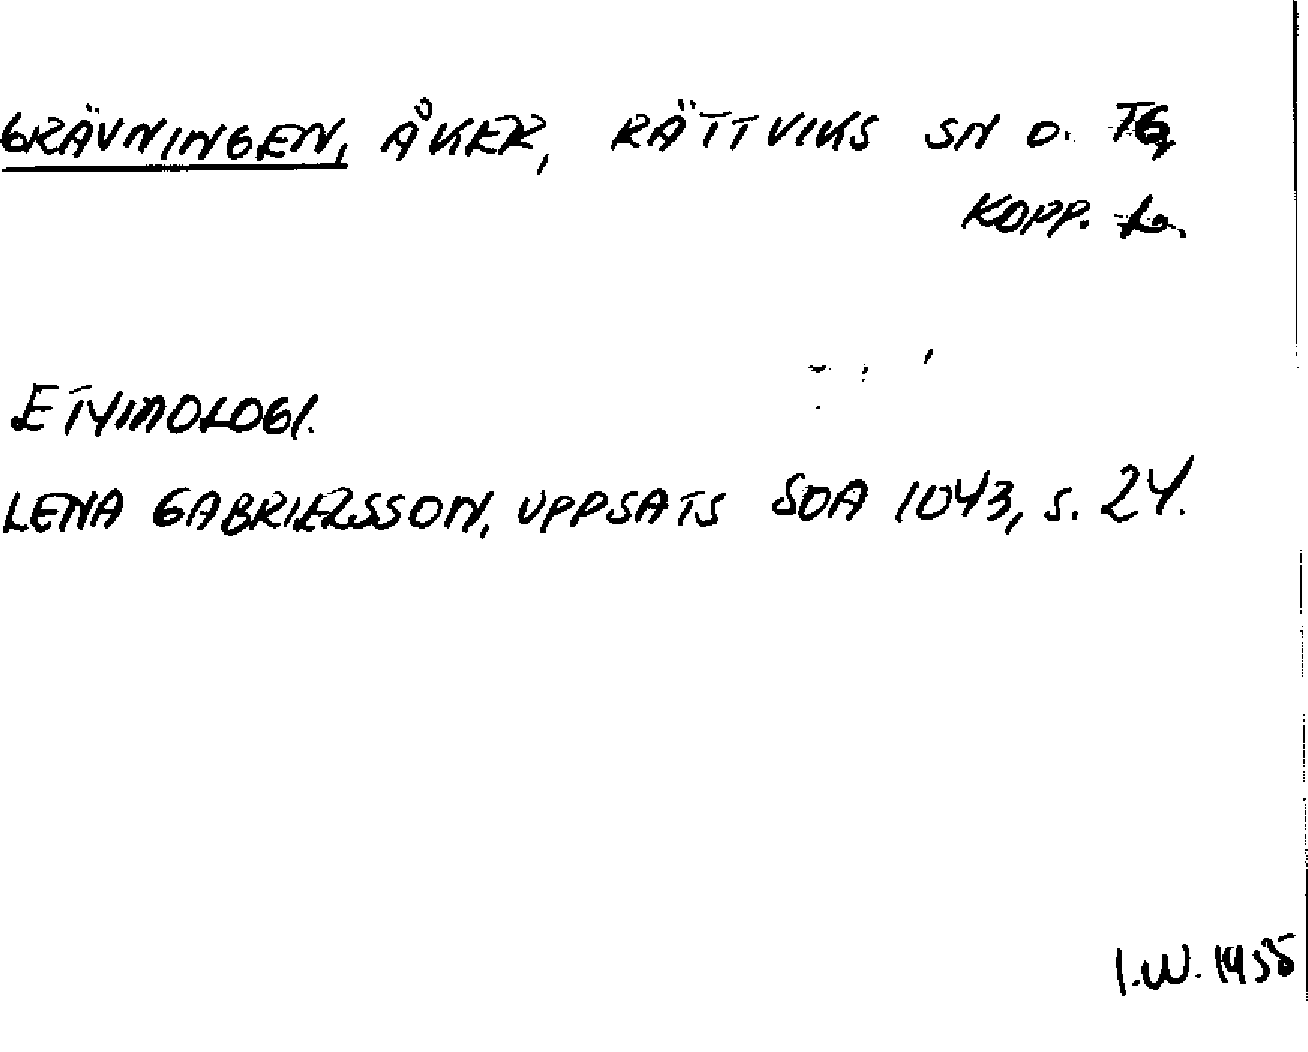 GRÄVNINGEN, ÅKER, RÄTTVIKS SN O. TG
KOPP. L.
ETYMOLOGI.
LENA GABRIELSSON, UPPSATS SOA 1043, S. 24.
I.W.